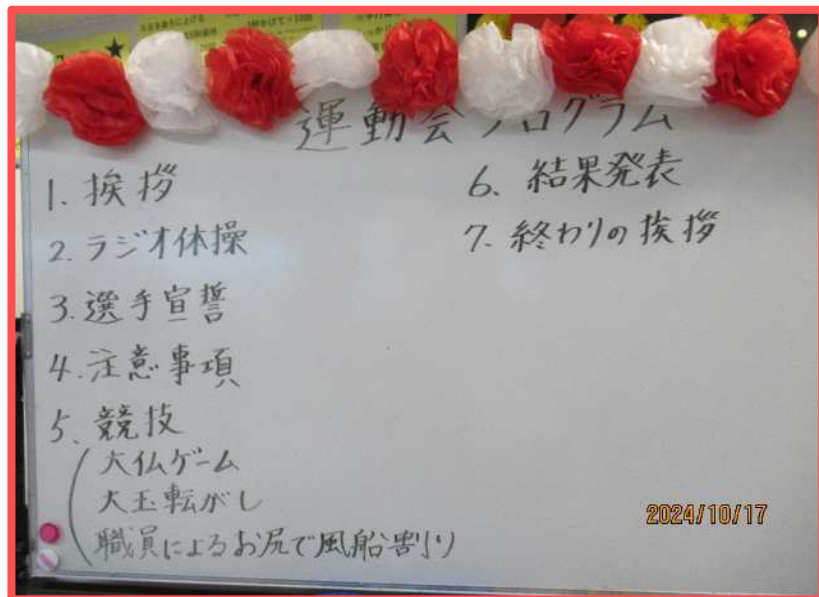 運動会プログラム
1. 挨拶
2. ラジオ体操
3. 選手宣誓
4. 注意事項
5. 競技
大仏ゲーム
大玉転がし
職員によるお尻で風船割り
6. 結果発表
7. 終わりの挨拶
2024/10/17